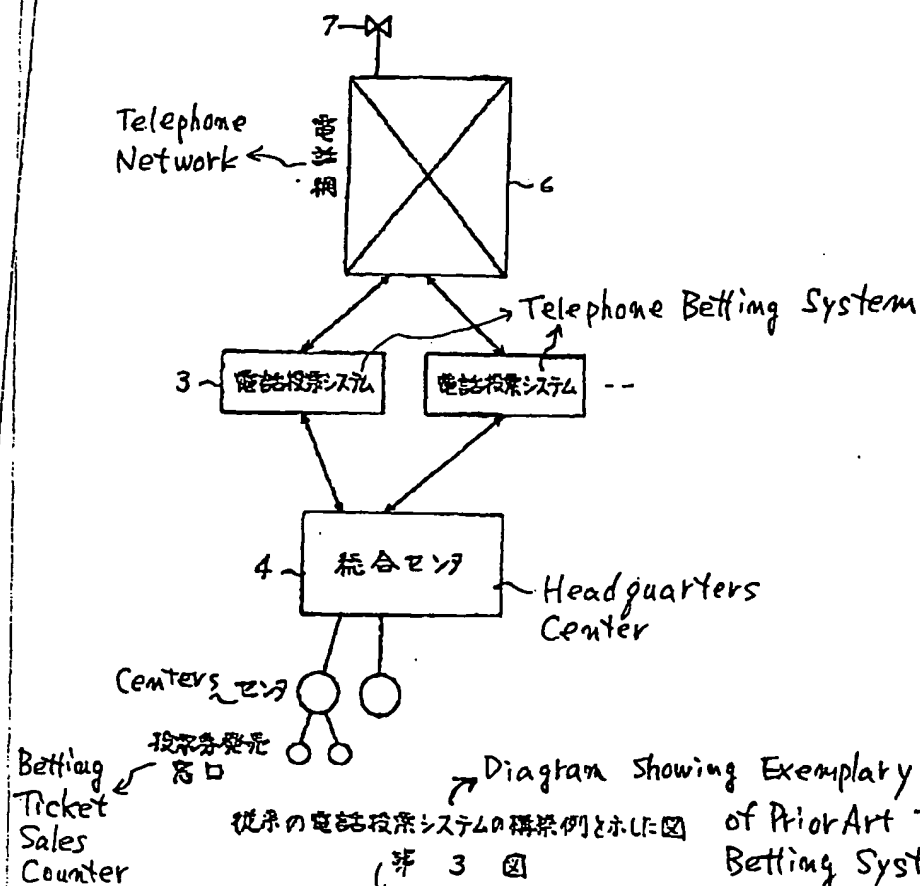 7
Telephone
Network
電話網
6
Telephone Betting System
3
電話投票システム
電話投票システム
4
総合センタ
Headquarters
Center
Centers
センタ
投票券発売
窓口
Betting
Ticket
Sales
Counter
Diagram Showing Exemplary
of Prior Art
Betting Syst
従来の電話投票システムの構築例を示した図
第 3 図